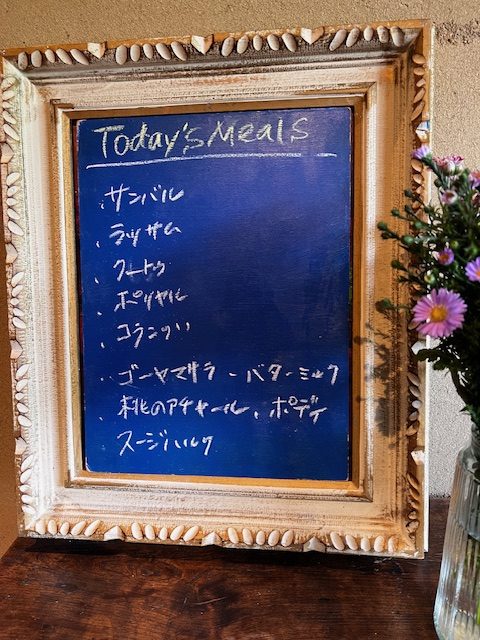 Today's Meals
・サンバル
・ラッサム
・クートゥ
・ポリヤル
・コランブ
・ゴーヤマサラ・バターミルク
・桃のアチャール、ポディ
スージハルワ